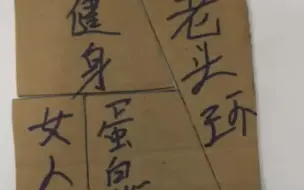 健身
老头环
女人
蛋白